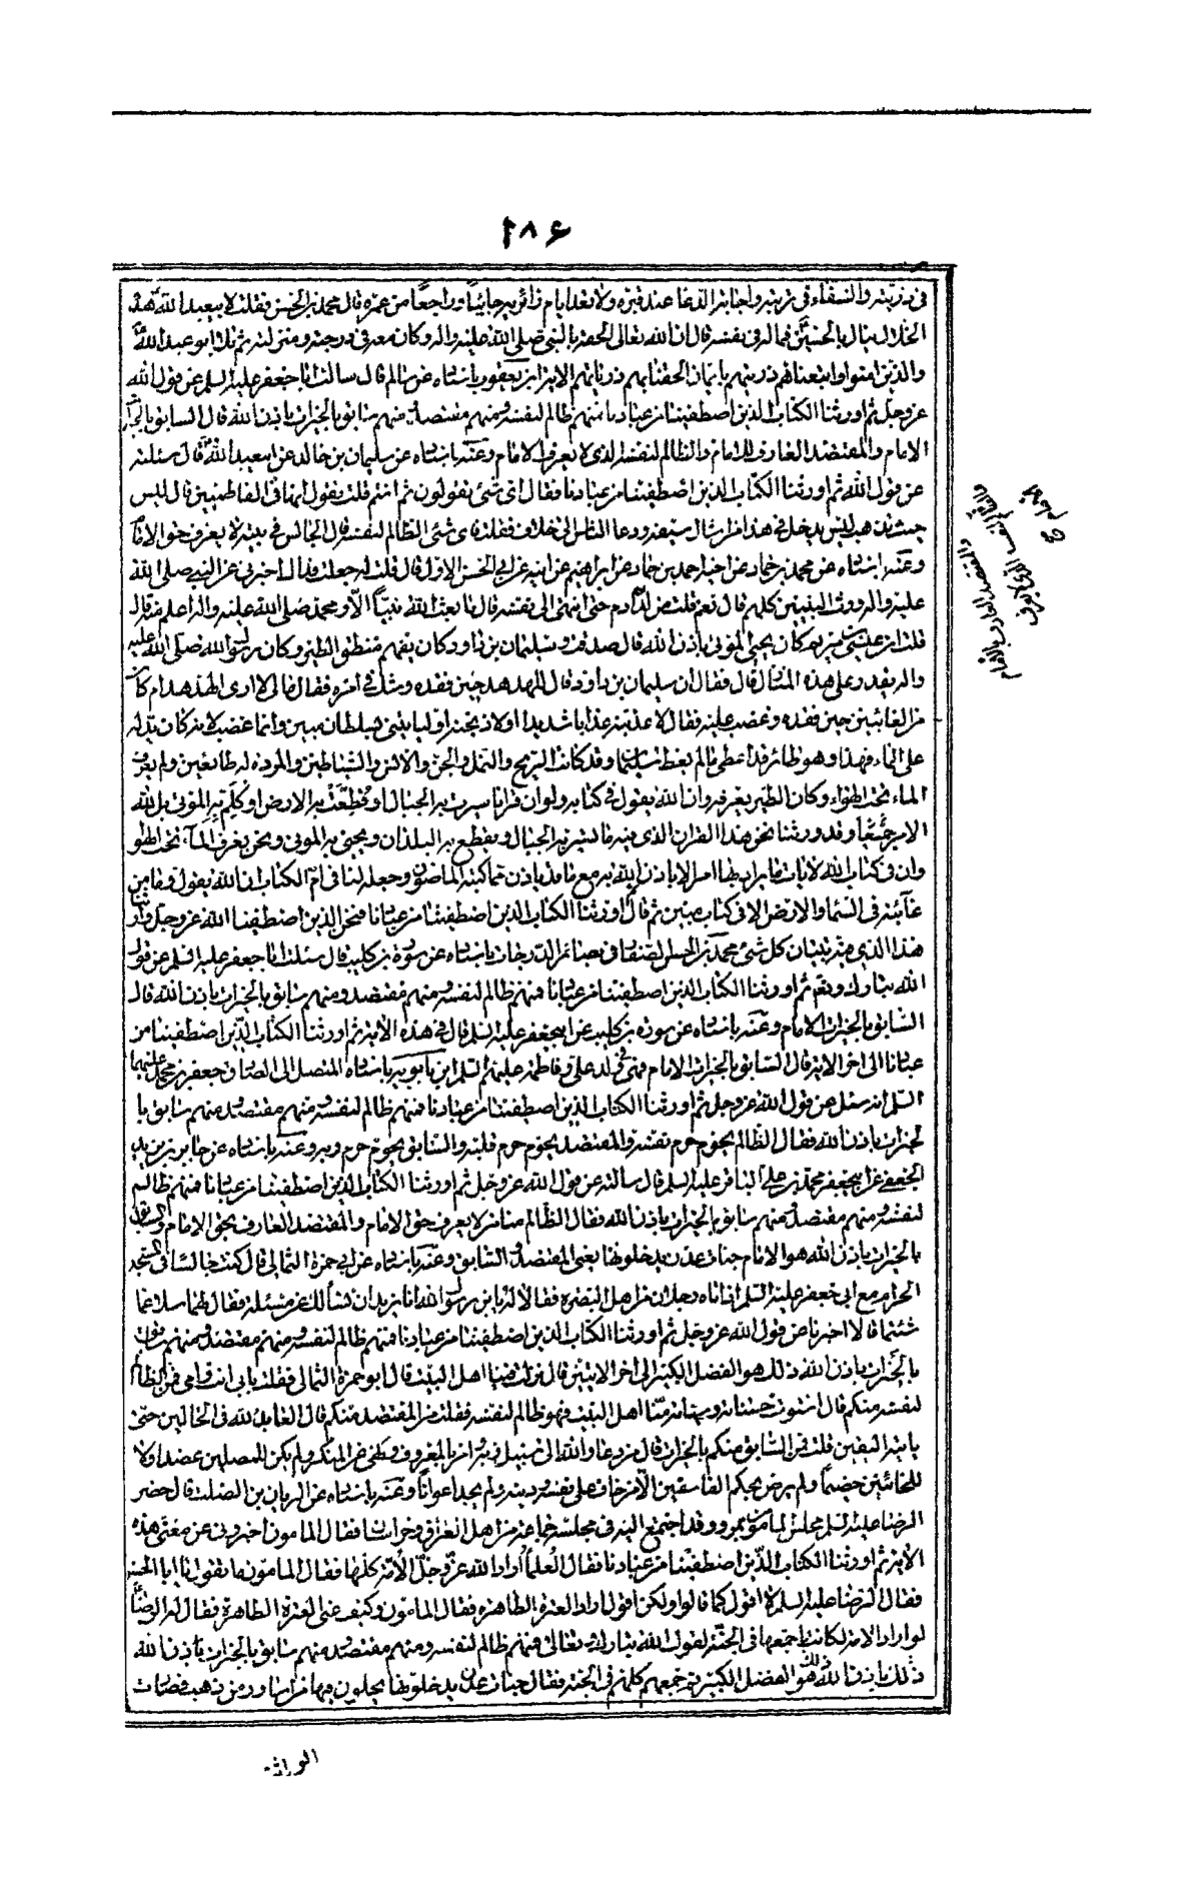 ٢٨۶
فی ذریته والشفاء فی تربته واجابة الدعا عند قبره ولا تعد ایام زائریه جائیا وراجعا من عمره قال محمد بن الحسن فقلت لابیعبد الله هذه
الخلال ینال بالحسین فماله فی نفسه قال ان الله تعالی الحقه بالنبی صلی الله علیه واله وکان معه فی درجته ومنزلته ثم تلا ابو عبد الله
والذین امنوا واتبعناهم ذریتهم بایمان الحقنا بهم ذریاتهم الایة ابن یعقوب باسناده عن سالم قال سالت ابا جعفر علیه السلم عن قول الله
عز وجل ثم اورثنا الکتاب الذین اصطفینا من عبادنا فمنهم ظالم لنفسه ومنهم مقتصد ومنهم سابق بالخیرات باذن الله قال السابق بالخیرات
الامام والمقتصد العارف للامام والظالم لنفسه الذی لا یعرف الامام وعنه باسناده عن سلیمان بن خالد عن ابیعبد الله قال سئلته
عن قول الله ثم اورثنا الکتاب الذین اصطفینا من عبادنا فقال ای شئ یقولون ثم انتم قلت یقول انها فی الفاطمیین قال لیس
حیث تذهب لیس یدخل فی هذا من اشال سیفه ودعا الناس الی خلاف فقلت فای شئی الظالم لنفسه قال الجالس فی بیته لا یعرف حق الامام
وعنه باسناده عن محمد بن حماد عن اخیه احمد بن حماد عن ابراهیم عن ابیه عن ابی الحسن الاول قال قلت له جعلت فداک اخبرنی عن النبی صلی الله
علیه واله ورث النبیین کلهم قال نعم قلت من لدن ادم حتی انتهی الی نفسه قال ما بعث الله نبیا الا ومحمد صلی الله علیه واله اعلم منه قال
قلت ان عیسی بن مریم کان یحیی الموتی باذن الله قال صدقت وسلیمان بن داود کان یفهم منطق الطیر وکان رسول الله صلی الله علیه
واله یقدر علی هذه المنازل قال فقال ان سلیمان بن داود قال للهدهد حین فقده وشک فی امره فقال مالی لا اری الهدهد ام کان
من الغائبین حین فقده وغضب علیه فقال لاعذبنه عذابا شدیدا او لاذبحنه او لیاتینی بسلطان مبین وانما غضب لانه کان یدله
علی الماء فهذا وهو طائر قد اعطی ما لم یعط سلیمان وقد کانت الریح والنمل والجن والانس والشیاطین والمردة له طائعین ولم یعرف
الماء تحت الهواء وکان الطیر یعرفه وان الله یقول فی کتابه ولو ان قرانا سیرت به الجبال او قطعت به الارض او کلم به الموتی بل لله
الامر جمیعا وقد ورثنا نحن هذا القران الذی فیه ما تسیر به الجبال ویقطع به البلدان ویحیی به الموتی ونحن نعرف الماء تحت الهواء
وان فی کتاب الله لایات ما یراد بها امر الا یاذن الله به مع ما قد یاذن مما کتبه الماضون وجعله لنا فی ام الکتاب ان الله یقول وما من
غائبة فی السماء والارض الا فی کتاب مبین ثم قال اورثنا الکتاب الذین اصطفینا من عبادنا فنحن الذین اصطفینا الله عز وجل واورثنا
هذا الذی فیه تبیان کل شئ محمد بن الحسن الصفار فی بصائر الدرجات باسناده عن سورة بن کلیب قال سئلت ابا جعفر علیه السلم عن قول
الله تبارک وتعالی ثم اورثنا الکتاب الذین اصطفینا من عبادنا فمنهم ظالم لنفسه ومنهم مقتصد ومنهم سابق بالخیرات باذن الله قال
السابق بالخیرات الامام وعنه باسناده عن سورة بن کلیب عن ابیجعفر علیه السلم قال فی هذه الایة ثم اورثنا الکتاب الذین اصطفینا من
عبادنا الی اخر الایة قال السابق بالخیرات الامام فهی فی ولد علی وفاطمة علیهم السلم ابن بابویه باسناده المتصل الی الصادق جعفر بن محمد علیهما
السلم انه سئل عن قول الله عز وجل ثم اورثنا الکتاب الذین اصطفینا من عبادنا فمنهم ظالم لنفسه ومنهم مقتصد ومنهم سابق با
لخیرات باذن الله فقال الظالم یحوم حوم نفسه والمقتصد یحوم حوم قلبه والسابق یحوم حوم ربه وعنه باسناده عن جابر بن یزید
الجعفی عن ابیجعفر محمد بن علی الباقر علیه السلم قال سالته عن قول الله عز وجل ثم اورثنا الکتاب الذین اصطفینا من عبادنا فمنهم ظالم
لنفسه ومنهم مقتصد ومنهم سابق بالخیرات باذن الله فقال الظالم منا من لا یعرف حق الامام والمقتصد العارف بحق الامام والسابق
بالخیرات باذن الله هو الامام جنات عدن یدخلونها یعنی المقتصد والسابق وعنه باسناده عن ابی حمزة الثمالی قال کنت جالسا فی المسجد
الحرام مع ابی جعفر علیه السلم اذ اتاه رجلان من اهل البصرة فقالا له یابن رسول الله انا نرید ان نسألک عن مسئلة فقال لهما سلا عما
شئتما قالا اخبرنا عن قول الله عز وجل ثم اورثنا الکتاب الذین اصطفینا من عبادنا فمنهم ظالم لنفسه ومنهم مقتصد ومنهم سابق
بالخیرات باذن الله ذلک هو الفضل الکبیر الی اخر الایتین قال نزلت فینا اهل البیت قال ابو حمزة الثمالی فقلت بابی انت وامی فمن الظالم
لنفسه منکم قال من استوت حسناته وسیئاته منا اهل البیت فهو ظالم لنفسه فقلت من المقتصد منکم قال العابد لله فی الحالین حتی
یاتیه الیقین قلت فمن السابق منکم بالخیرات قال من دعا والله الی سبیل ربه وامر بالمعروف ونهی عن المنکر ولم یکن للمضلین عضدا ولا
للخائنین خصیما ولم یرض بحکم الفاسقین الا من خاف علی نفسه ودینه ولم یجد اعوانا وعنه باسناده عن الریان بن الصلت قال حضر
الرضا علیه السلم مجلس المامون بمرو وقد اجتمع الیه فی مجلسه جماعة من اهل العراق وخراسان فقال المامون اخبرونی عن معنی هذه
الایة ثم اورثنا الکتاب الذین اصطفینا من عبادنا فقال العلماء اراد الله عز وجل الامة کلها فقال المامون ما تقول یا ابا الحسن
فقال الرضا علیه السلم لا اقول کما قالوا ولکن اقول اراد العترة الطاهرة فقال المامون وکیف عنی العترة الطاهرة فقال له الرضا
لو اراد الامة لکانت اجمعها فی الجنة لقول الله تبارک وتعالی فمنهم ظالم لنفسه ومنهم مقتصد ومنهم سابق بالخیرات باذن الله
ذلک باذن الله ذلک هو الفضل الکبیر ثم جمعهم کلهم فی الجنة فقال جنات عدن یدخلونها یحلون فیها من اساور من ذهب فصارت
الوراثة
والمقتصد العارف بالامام
والظالم لنفسه الذی لا یعرف
الامام